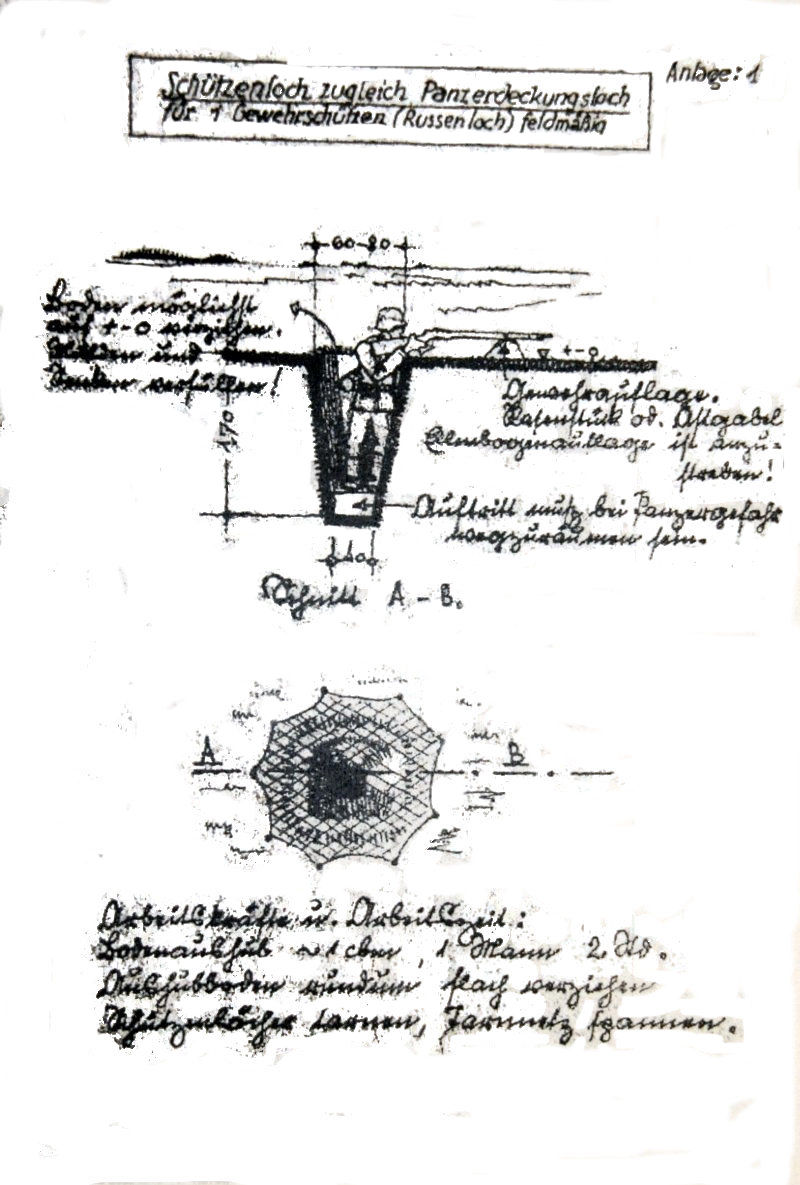 Anlage: 1
Schützenloch zugleich Panzerdeckungsloch
für 1 Gewehrschützen (Russenloch) feldmäßig
60-80
Boden möglichst
auf +-0 verziehen.
Mulden und
Senken verfüllen!
+-0
Gewehrauflage.
Rasenstück od. Astgabel
Ellenbogenauflage ist anzu-
streben!
170
Auftritt muß bei Panzergefahr
wegzuräumen sein.
40
Schnitt A - B.
A
B
Arbeitskräfte u. Arbeitszeit:
Bodenaushub ~ 1 cbm, 1 Mann 2 Std.
Aushubboden rundum flach verziehen
Schützenlöcher tarnen, Tarnnetz spannen.